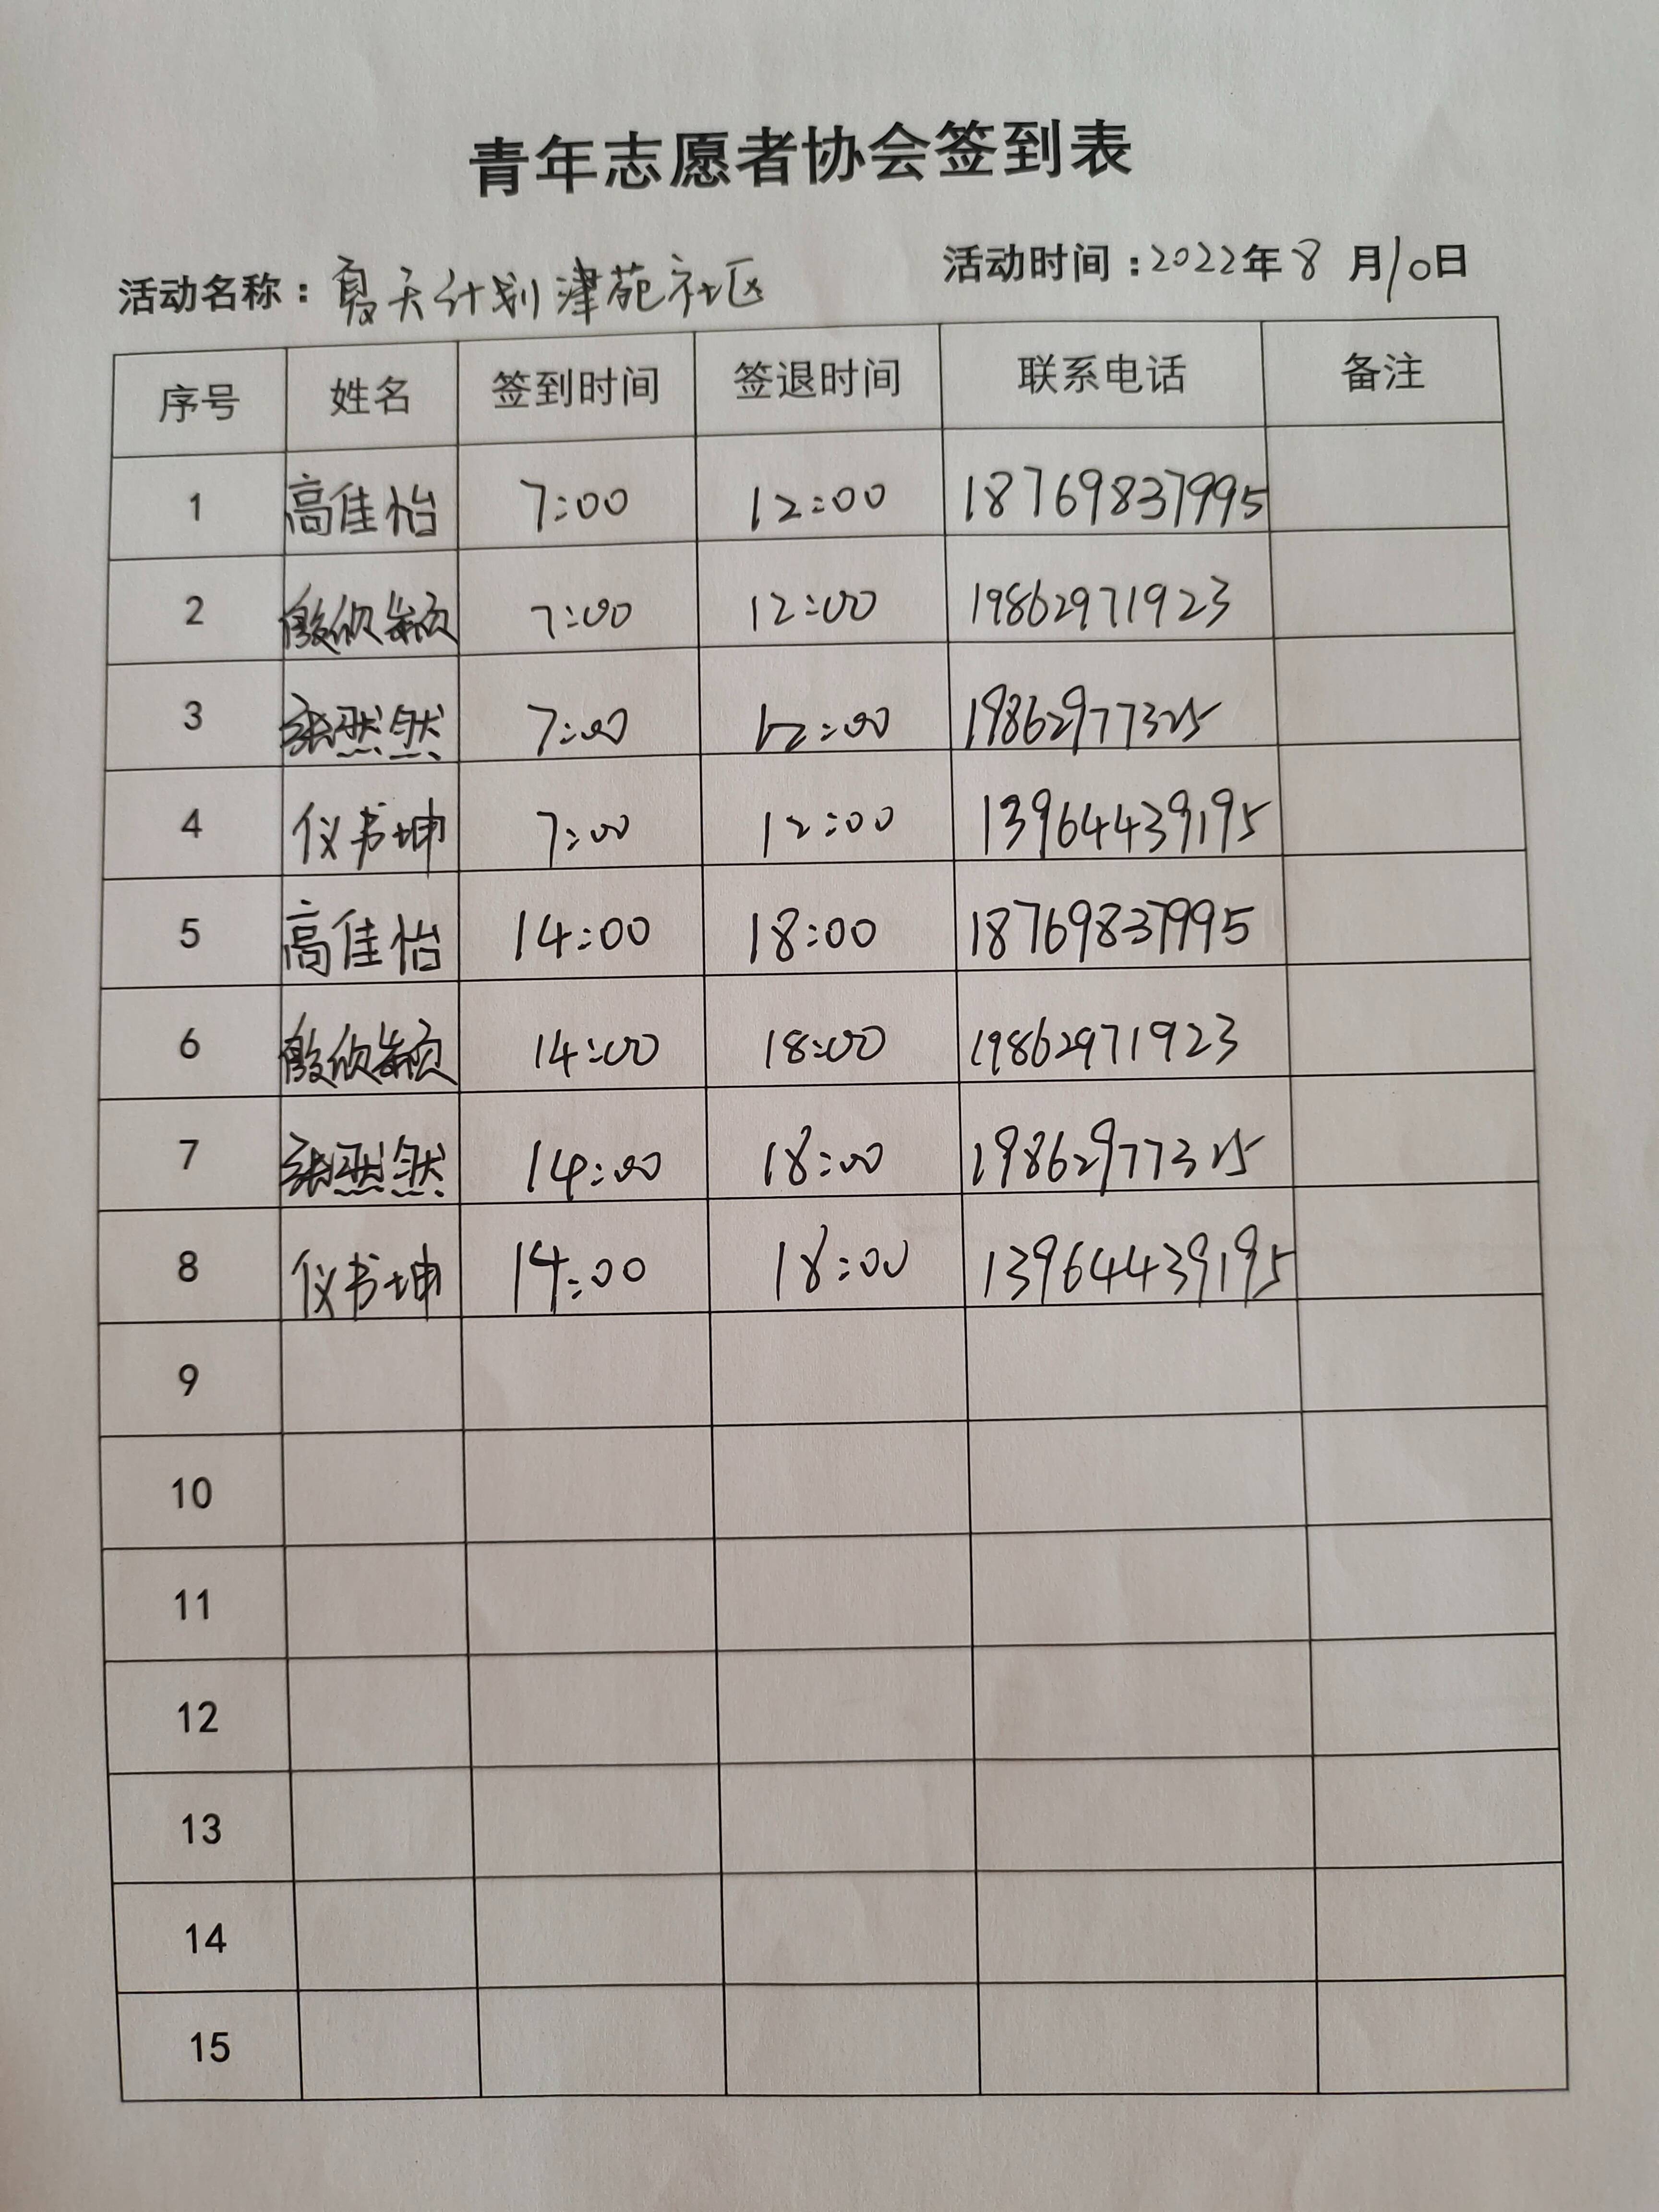 青年志愿者协会签到表
活动名称：夏天计划津苑社区 活动时间：2022年8月10日
序号 姓名 签到时间 签退时间 联系电话 备注
1 高佳怡 7:00 12:00 18769837995
2 殷欣颖 7:00 12:00 19862971923
3 张燃然 7:00 12:00 19862977325
4 仪书坤 7:00 12:00 13964439195
5 高佳怡 14:00 18:00 18769837995
6 殷欣颖 14:00 18:00 19862971923
7 张燃然 14:00 18:00 19862977325
8 仪书坤 14:00 18:00 13964439195
9
10
11
12
13
14
15